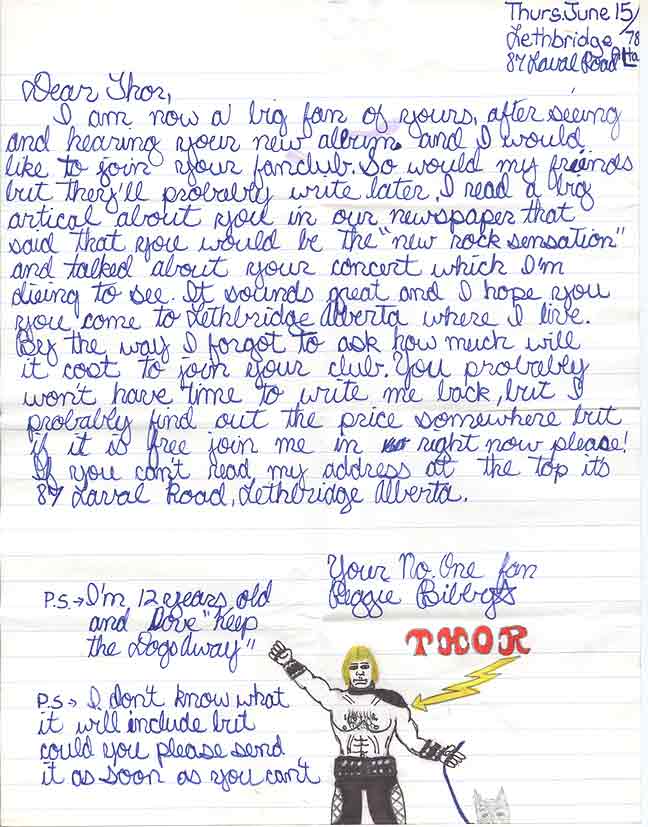 Thurs. June 15/78
Lethbridge Alta
87 Laval Road
Dear Thor,
I am now a big fan of yours, after seeing
and hearing your new album and I would
like to join your fanclub. So would my friends
but they'll probably write later. I read a big
artical about you in our newspaper that
said that you would be the "new rock sensation"
and talked about your concert which I'm
dieing to see. It sounds great and I hope you
you come to Lethbridge Alberta where I live.
By the way I forgot to ask how much will
it cost to join your club. You probably
won't have time to write me back, but I
probably find out the price somewhere but
if it is free join me in right now please!
If you can't read my address at the top its
87 Laval Road, Lethbridge Alberta.
Your No. One fan
Peggie Bibby
P.S.→ I'm 12 years old
and Love "Keep
the Dogs Away"
THOR
P.S→ I don't know what
it will include but
could you please send
it as soon as you can't